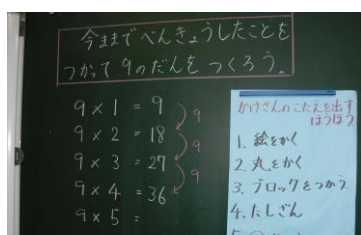 今までべんきょうしたことを
つかって9のだんをつくろう。
9×1=9
9×2=18
9×3=27
9×4=36
9×5=
9
9
9
かけざんのこたえを出す
ほうほう
1. 絵をかく
2. 丸をかく
3. ブロックをつかう
4. たしざん